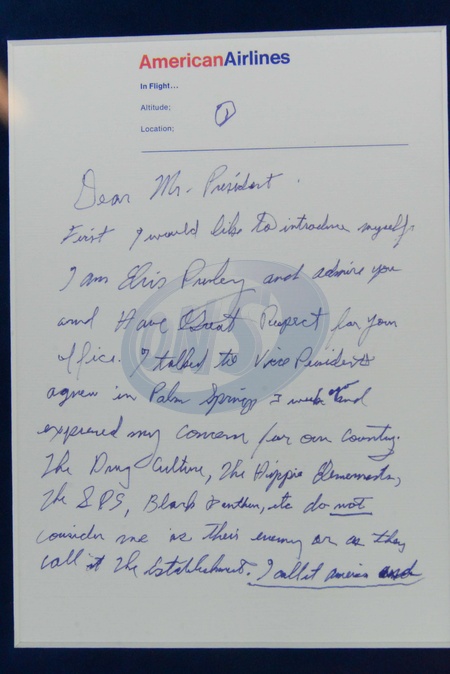 AmericanAirlines
In Flight...
Altitude;
Location;
1
Dear Mr. President.
First I would like to introduce myself.
I am Elvis Presley and admire you
and Have Great Respect for your
office. I talked to Vice President
agnew in Palm Springs I week ago and
expressed my concern for our country.
The Drug Culture, The Hippie Elements,
The SDS, Black Panthers, etc do not
consider me as their enemy or as they
call it The Establishment. I call it america and